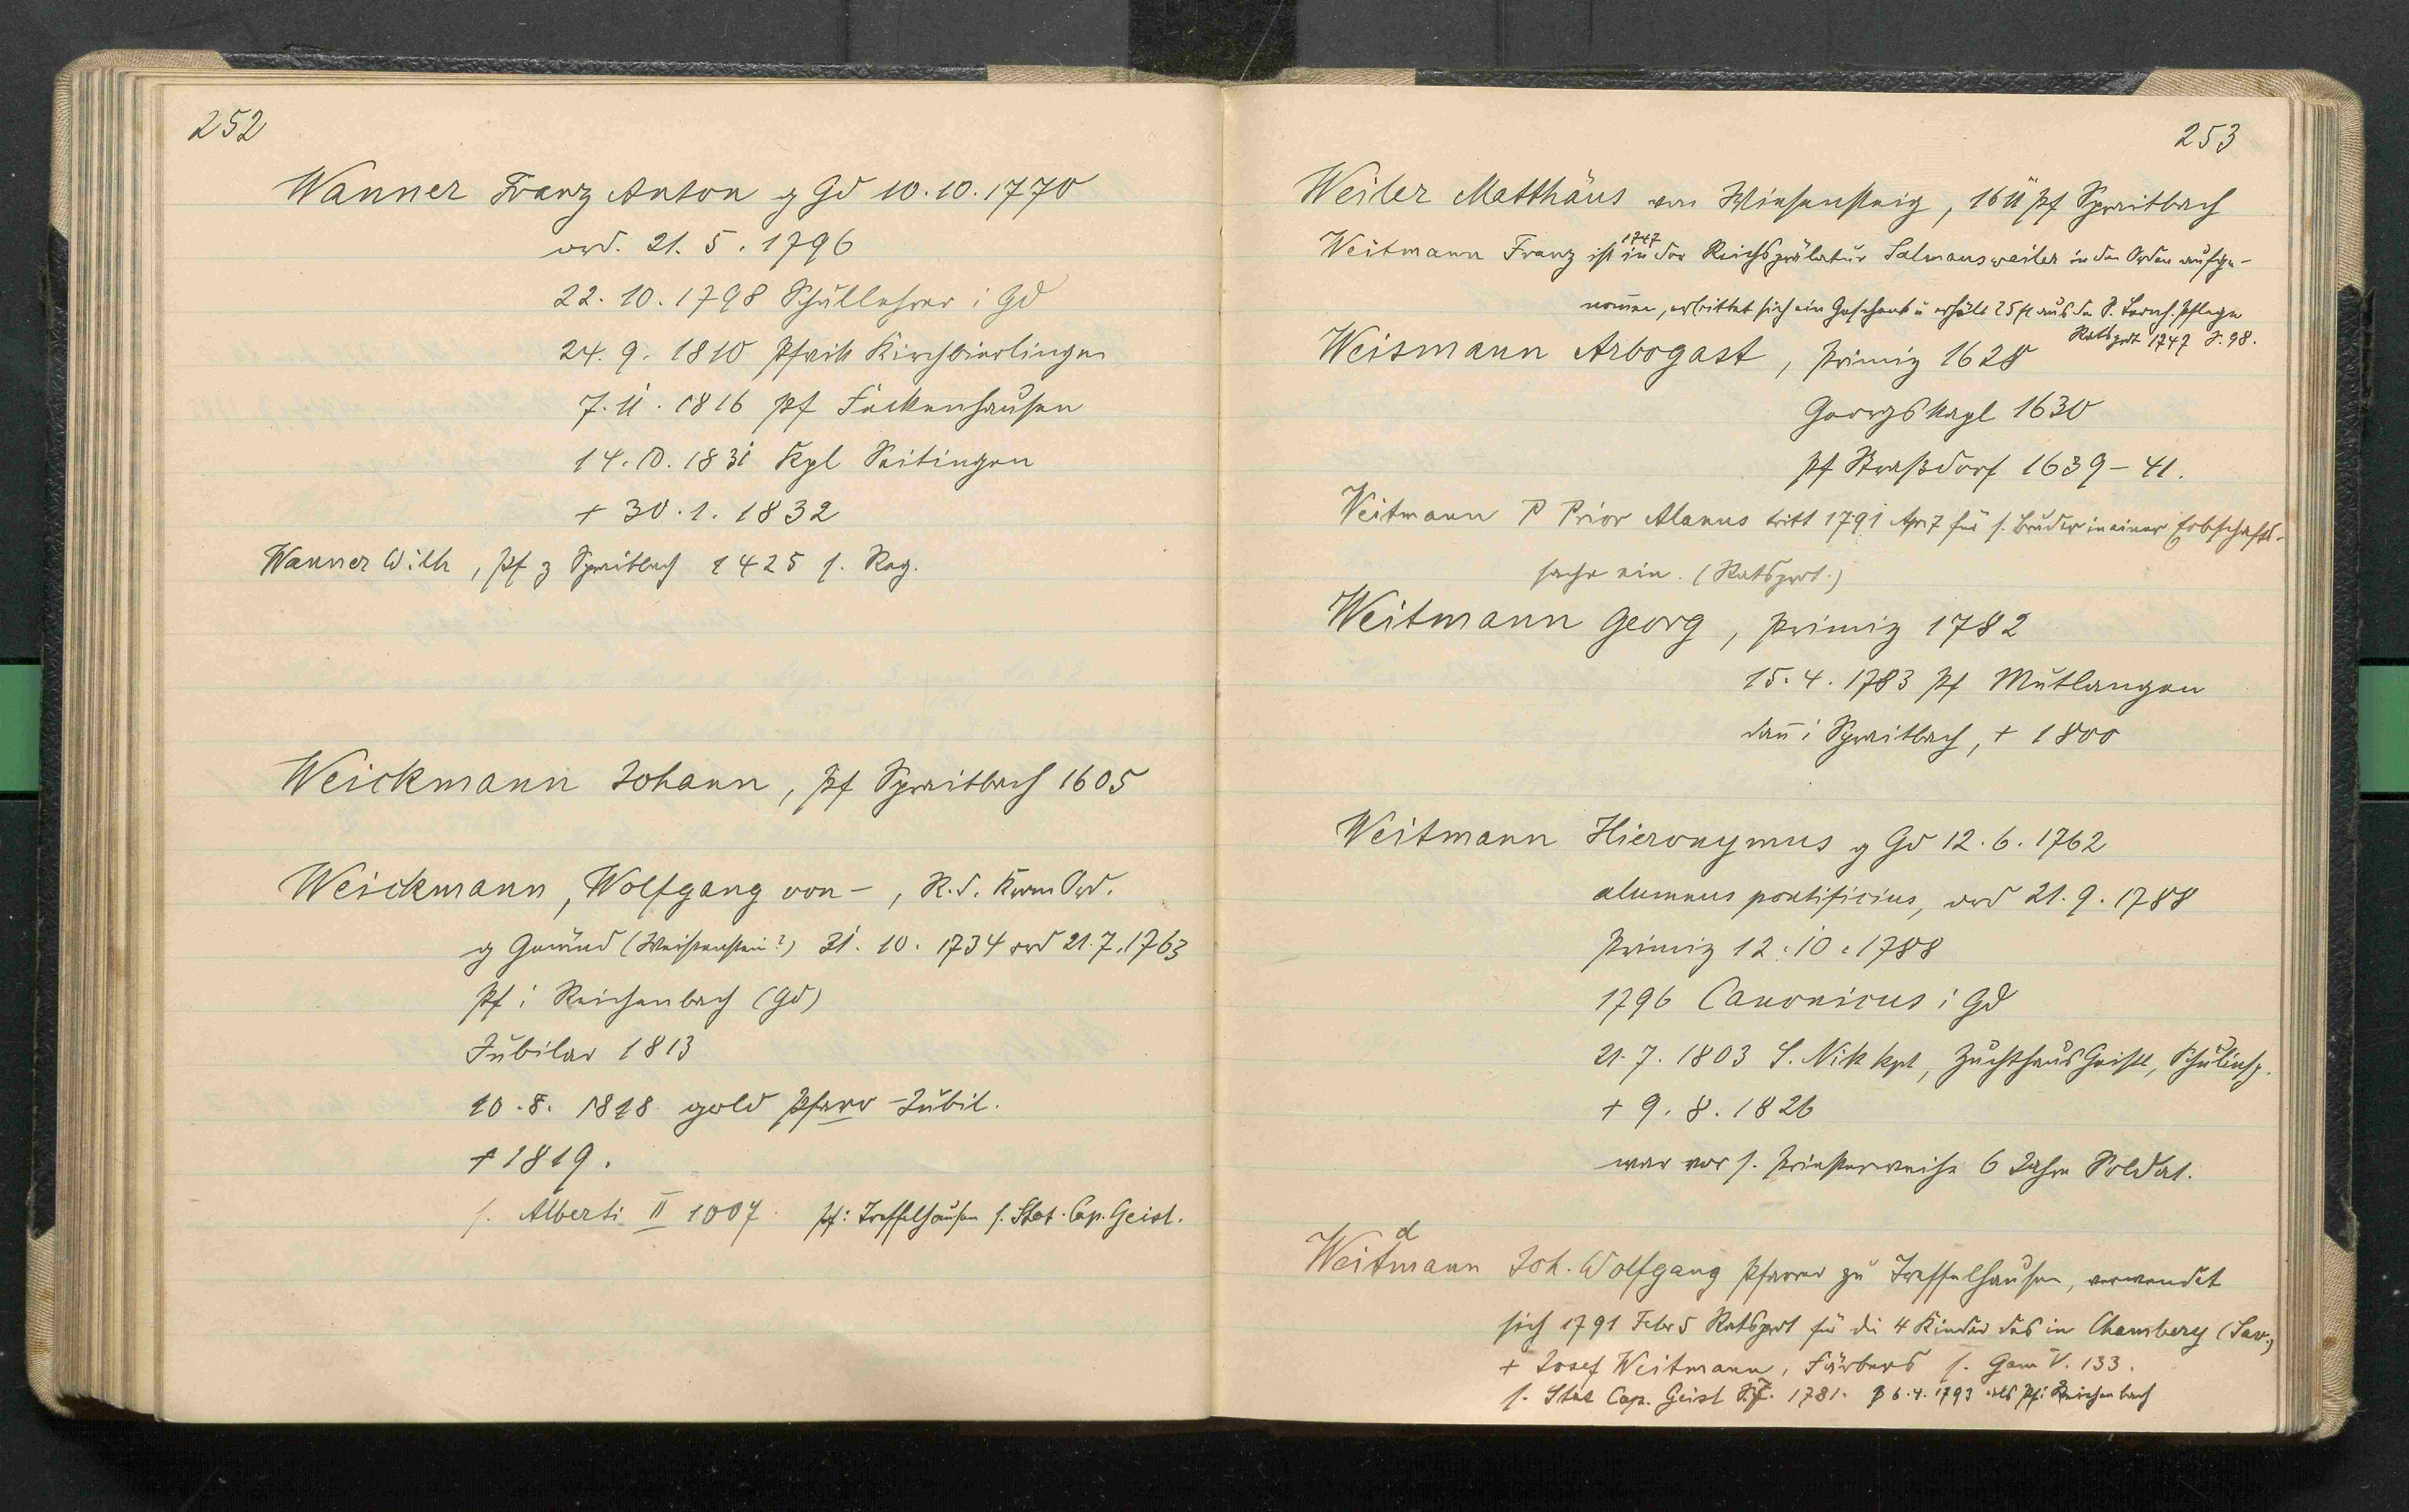 252
Wanner Franz Anton g Gd 10.10.1770
ord. 21.5.1796
22.10.1798 Schullehrer i Gd
24.9.1810 Pfarr Kirchbierlingen
7.11.1816 Pf Fackenhausen
14.10.1831 Kpl Seitingen
+ 30.1.1832
Wanner Wilh, Pf z Spraitbach 1425 s. Reg.
Weickmann Johann, Pf Spraitbach 1605
Weickmann, Wolfgang von -, R.d. Ord.
g Gmünd (Weissenstein?) 31.10.1734 ord 21.7.1763
Pf i Reichenbach (Gd)
Jubilar 1813
10.8.1818 gold Pfarr-Jubil.
+ 1819.
s. Alberti II 1007. Pf i Treffelhausen s. Stat. Cap. Geisl.
253
Weiler Matthäus von Wiesensteig, 1611 Pf Spraitbach
Weitmann Franz ist 1747 in der Reichsprälatur Salmansweiler in den Orden aufge-
nomen, erbittet sich ein Geschenk u erhält 25 fl aus der S. Pflege
Ratsprot 1747 S. 98.
Weismann Arbogast, Primiz 1628
Georgskapl 1630
Pf Straßdorf 1639-41.
Weitmann P Prior Alanus tritt 1791 Apr 7 für s. Bruder in einer Erbschafts-
sache ein. (Ratsprot.)
Weitmann Georg, Primiz 1782
15.4.1783 Pf Mutlangen
dan i Spraitbach, + 1800
Weitmann Hieronymus g Gd 12.6.1762
alumnus pontificius, ord 21.9.1788
Primiz 12.10.1788
1796 Canonicus i Gd
21.7.1803 S. Nik kpl, Zuchthaus Geistl, Schulinsp.
+ 9.8.1826
war vor s. Priesterweihe 6 Jahre Soldat.
d
Weitmann Joh. Wolfgang Pfarrer zu Treffelhausen, verwendet
sich 1791 Febr 5 Ratsprot für die 4 Kinder des in Chambery (Sav.)
+ Josef Weitmann, Färbers s. Gam V. 133.
s. Stat Cap. Geisl S. 1781. 6.4.1793 als Pf i Reichenbach